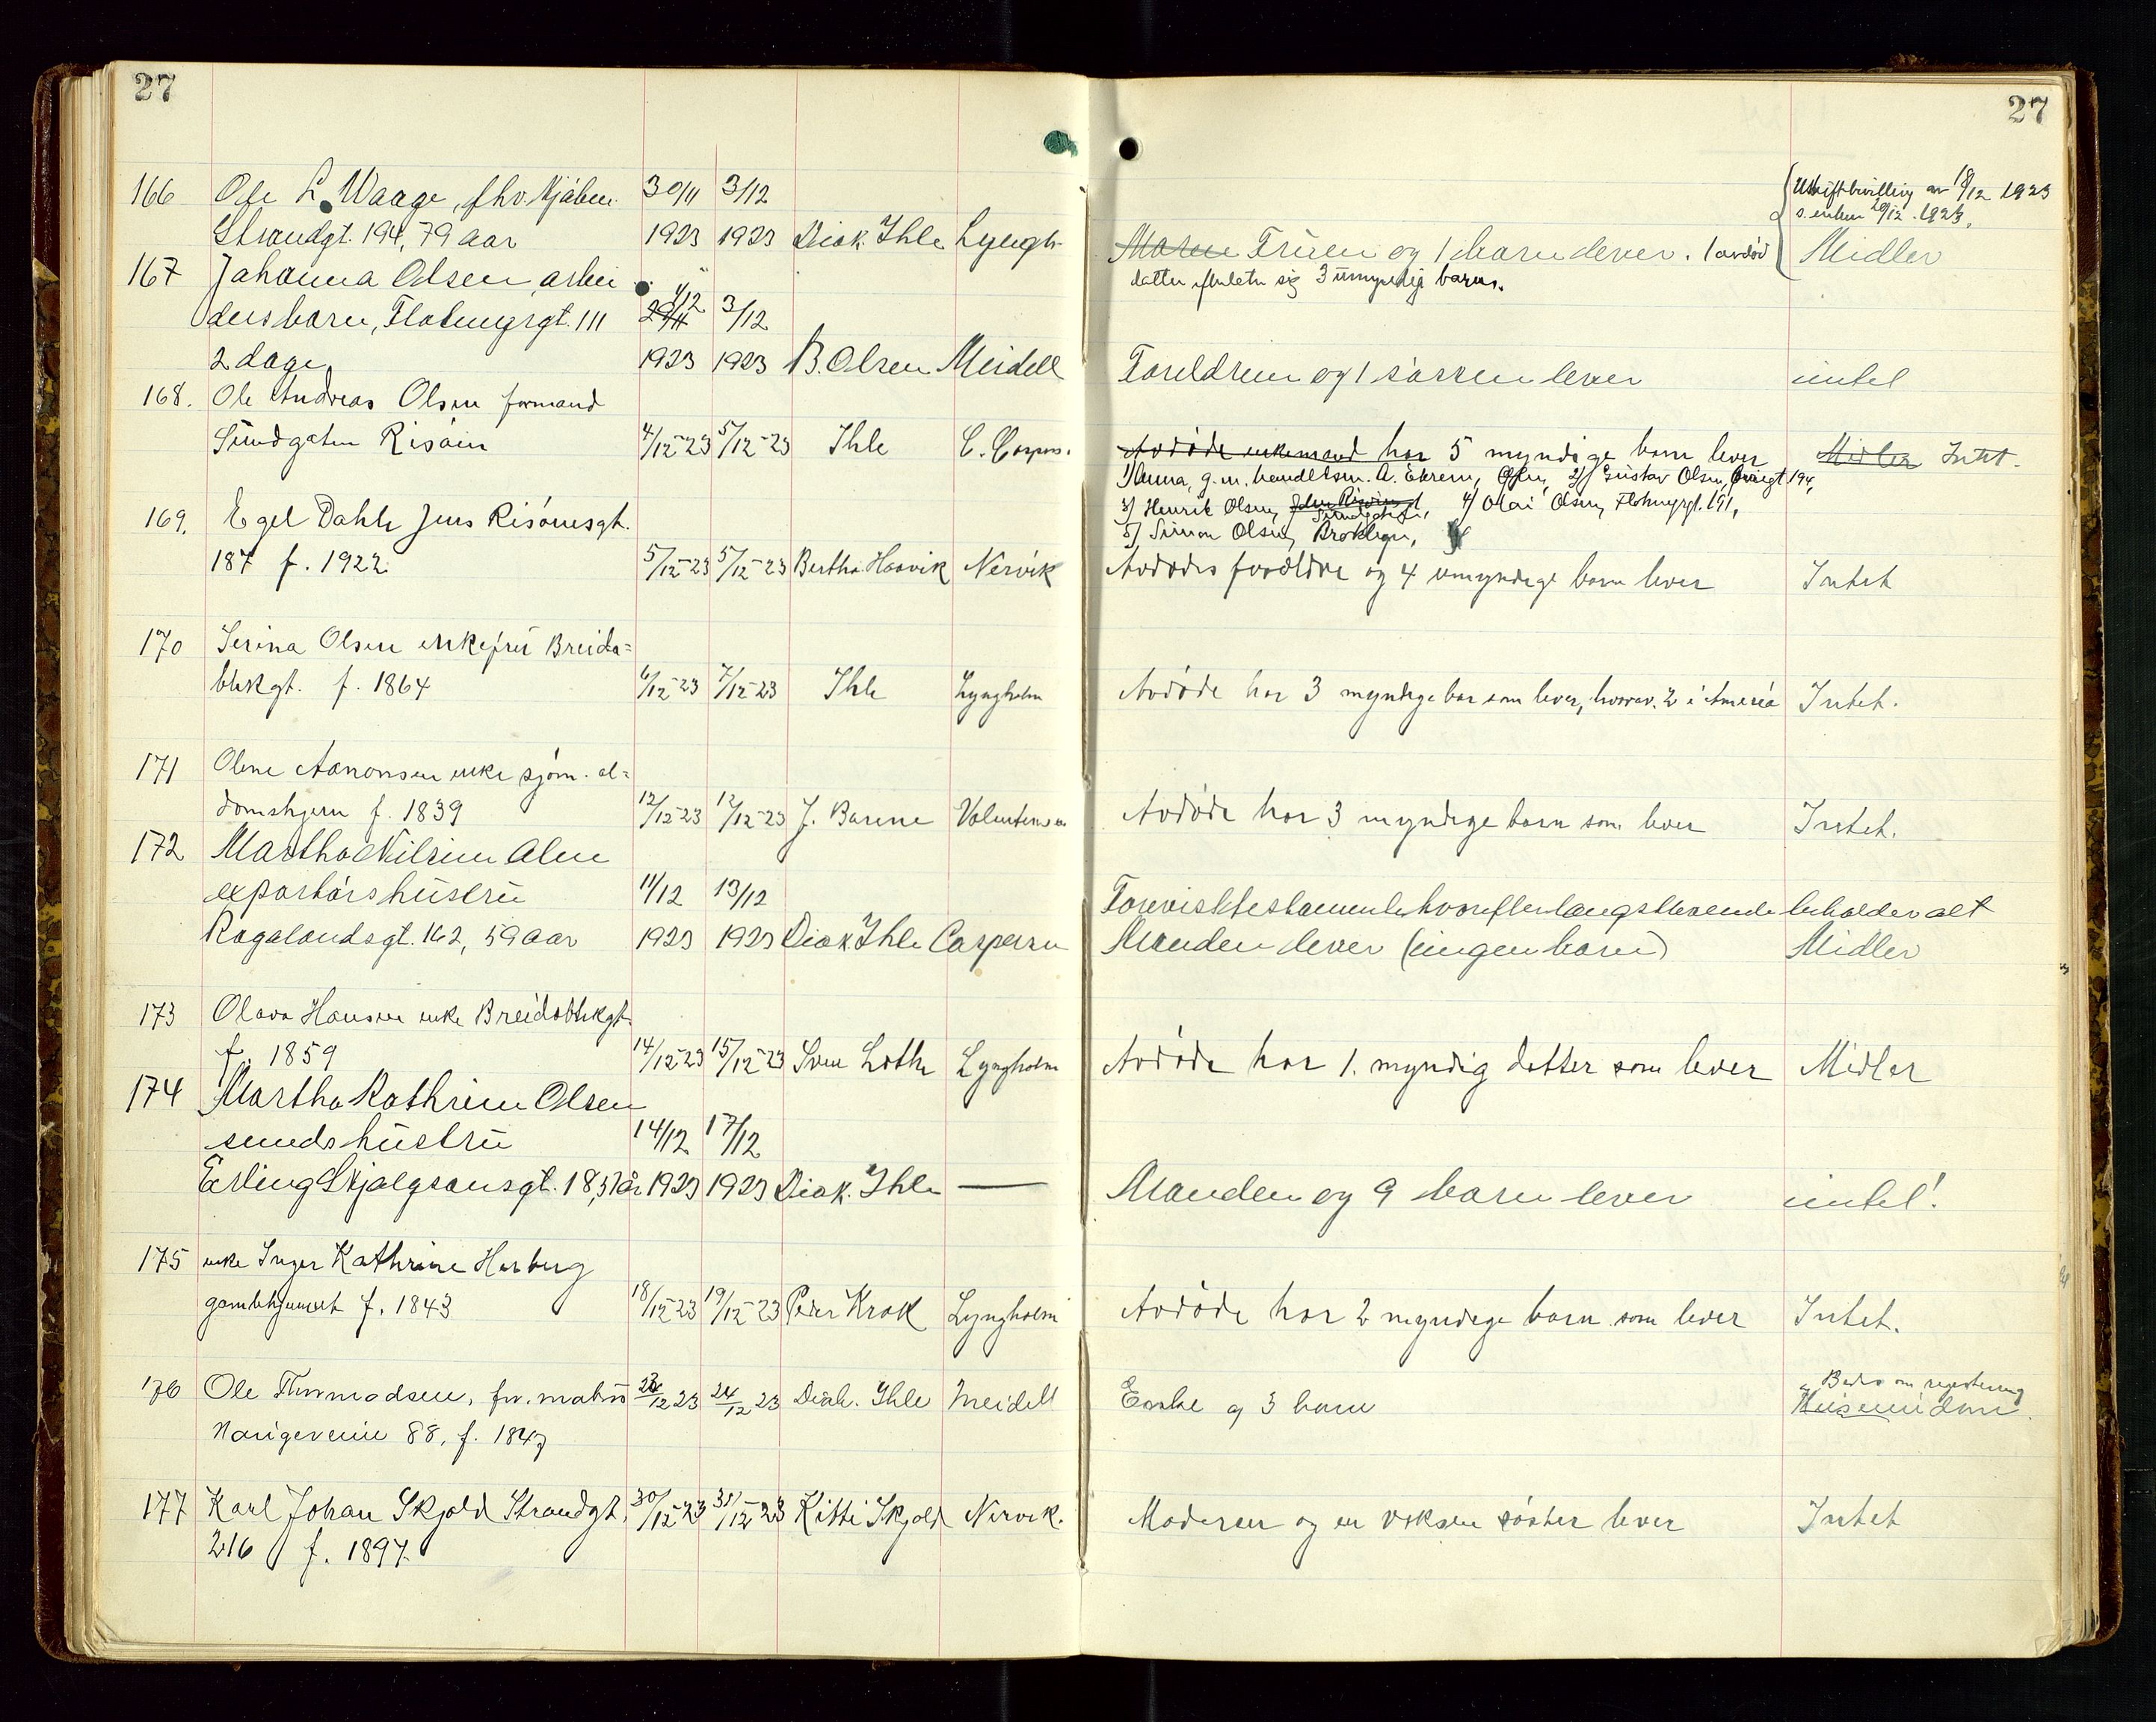 27
27
166 Ole L. Waage, fhv. kjøbm. 30/11 3/12
Strandgt. 194, 79 aar 1923 1923 Diak. Ihle Lyngh.
Fruen og 1 barn lever. 1 avdød
datter efterlater sig 3 umyndige barn.
Uskiftbevilling av 18/12 1923
Midler
167 Johanna Olsen, arbei
dersbarn, Flotmyrgt. 111 1/12 3/12
2 dage 1923 1923 B. Olsen Meidell
Foreldrene og 1 søsken lever intet
168. Ole Andreas Olsen formand
Sundgaten Risøin 4/12-23 5/12-23 Ihle C. Caspers.
Avdøde enkemand har 5 myndige barn lever Midler Intet.
1) Anna, g.m. handelsm. A. Ekrem, 2) Gustav Olsen, 194,
3) Henrik Olsen, Sundgaten, 4) Olai Olsen, Flotmyrgt. 191,
5) Simon Olsen,
169. Egel Dahle Jens Risøensgt.
187 f. 1922 5/12-23 5/12-23 Bertha Haavik Nervik
Avdødes forældre og 4 umyndige barn lever Intet
170 Serina Olsen enkefru Breida=
blikgt. f. 1864 6/12-23 7/12-23 Ihle Lyngholm
Avdøde har 3 myndige bar som lever, hvorav 2 i Ameria Intet.
171 Oline Aanonsen enke sjøm. al=
domshjem f. 1839 12/12-23 12/12-23 J. Barene Valentinsen
Avdøde har 3 myndige barn som lever Intet.
172 Martha Nilsine Alne
exportørs hustru 11/12 13/12
Rogalandsgt. 162, 59 aar 1923 1923 Diak Ihle Caspersen
Forevist testamente hvorefter længstlevende beholder alt
Manden lever (ingen barn) Midler
173 Olava Hansen enke Breidablikgt.
f. 1859 14/12-23 15/12-23 Sven Lothe Lyngholm
Avdøde har 1. myndig datter som lever Midler
174 Martha Kathrine Olsen
smeds hustru 14/12 17/12
Erling Skjalgsonsgt. 18, 51 år 1923 1923 Diak. Ihle —
Manden og 9 barn lever intet!
175 enke Inger Kathrine Hauberg
gamlehjemmet f. 1843 18/12-23 19/12-23 Peder Krok Lyngholm
Avdøde har 2 myndige barn som lever Intet.
176 Ole Thormodsen, fv. matros 23/12 23 24/12 23 Diak. Ihle Meidell
Haugeveien 88, f. 1847
Enke og 3 barn
Beder om registrering
Huseiendom.
177 Karl Johan Skjold Strandgt. 30/12-23 31/12-23 Kitti Skjold Nervik.
216 f. 1897
Moderen og en voksen søster lever Intet